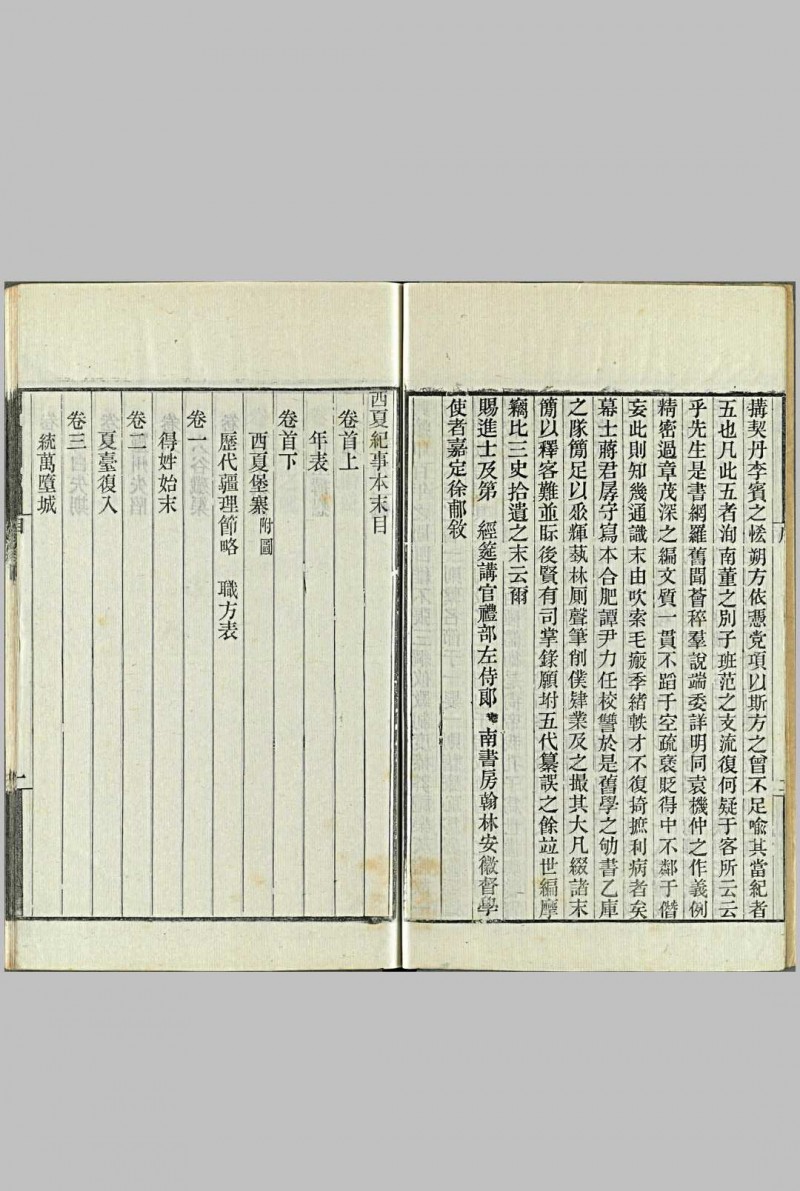 搆契丹李賓之恡朔方依憑党項以斯方之曾不足喻其當紀者
五也凡此五者洵南董之別子班范之支流復何疑于客所云云
乎先生是書網羅舊聞薈稡羣說端委詳明同袁機仲之作義例
精密過章茂深之編文質一貫不蹈于空疏襃貶得中不鄰于僭
妄此則知幾通識末由吹索毛瘢季緒軼才不復掎摭利病者矣
幕士蔣君孱守寫本合肥譚尹力任校讐於是舊學之劬書乙庫
之隊簡足以烝輝蓺林厠聲筆削僕肄業及之撮其大凡綴諸末
簡以釋客難並眎後賢有司掌錄願坿五代纂誤之餘竝世編摩
竊比三史拾遺之末云爾
賜進士及第 經筵講官禮部左侍郎 南書房翰林安徽督學
使者嘉定徐郙敘
序
西夏紀事本末目
卷首上
年表
卷首下
西夏堡寨附圖
歷代疆理節略 職方表
卷一
得姓始末
卷二
夏臺復入
卷三
統萬墮城
目
一